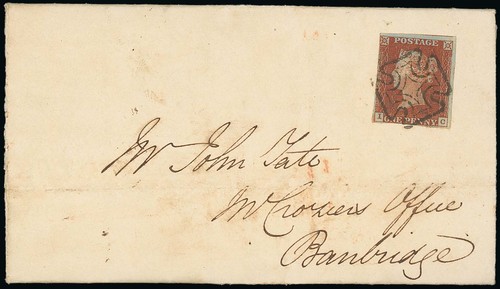 POSTAGE
ONE PENNY
I C
Mr John Tate
Mr Croziers Office
Banbridge